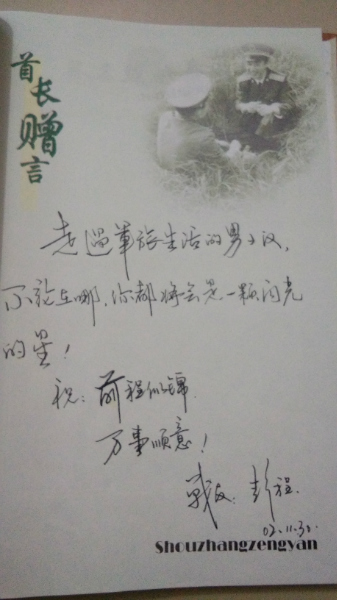 首长赠言
走过军旅生活的男子汉,
不论在哪,你都将会是一颗闪光
的星!
祝:前程似锦
万事顺意!
战友:彭程
02.11.30.
Shouzhangzengyan